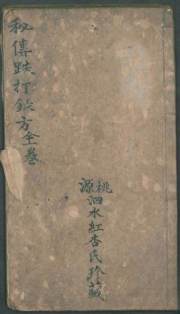 秘傳跌打銓方全卷
桃源泗水紅杏氏珍藏